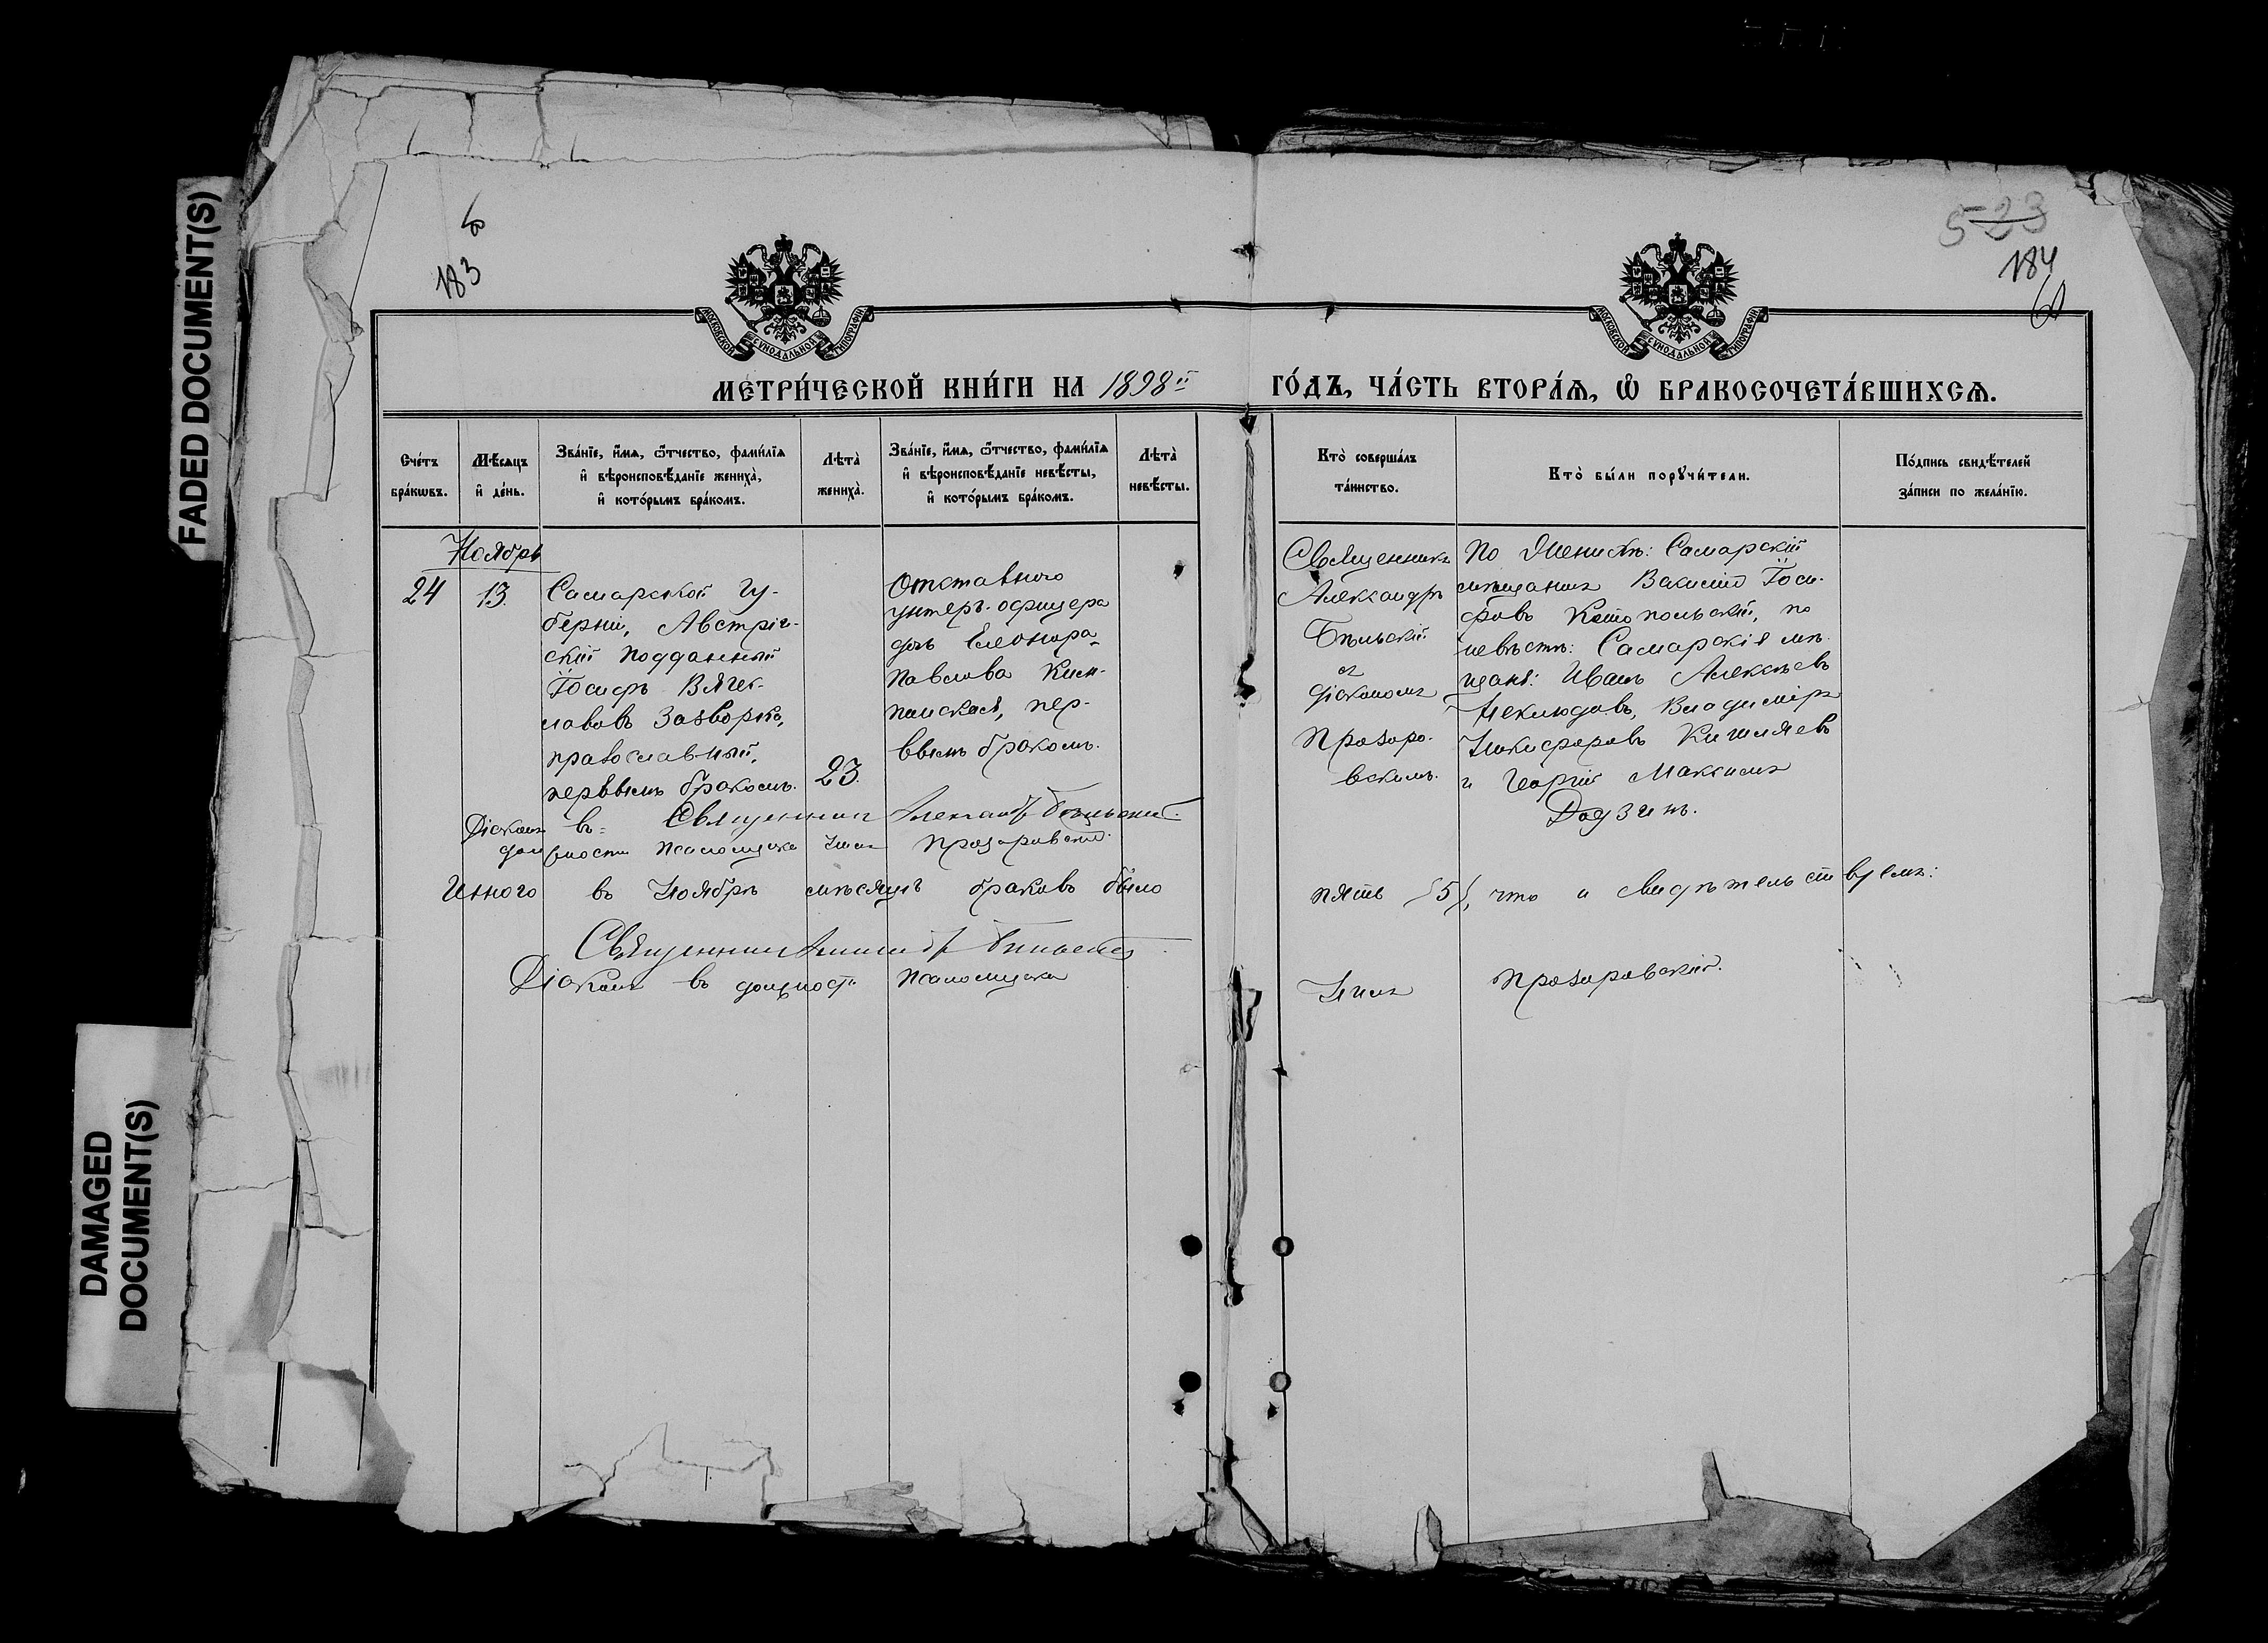 FADED DOCUMENT(S)
DAMAGED
DOCUMENT(S)
183
523
184
МОСКОВСКОЙ СѴНОДАЛЬНОЙ ТИПОГРАФІИ
МОСКОВСКОЙ СѴНОДАЛЬНОЙ ТИПОГРАФІИ
МЕТРИ́ЧЕСКОЙ КНИ́ГИ НА 1898й ГО́ДЪ, ЧА́СТЬ ВТОРА́Ѧ, Ѡ҆ БРАКОСОЧЕТА́ВШИХСѦ.
Сче́тъ
бра́кѡвъ.
Мѣ́сяцъ
и҆ де́нь.
Зва́нїе, и҆́мѧ, ѻ҆́тчество, фами́лїѧ
и҆ вѣроисповѣ́данїе женихà,
и҆ кото́рымъ бра́комъ.
Лѣтà
женихà.
Зва́нїе, и҆́мѧ, ѻ҆́тчество, фами́лїѧ
и҆ вѣроисповѣ́данїе невѣ́сты,
и҆ кото́рымъ бра́комъ.
Лѣтà
невѣ́сты.
Ктò соверша́лъ
та́инство.
Ктò бы́ли порꙋчи́тели.
По́дпись свидѣ́телей
за́писи по жела́нїю.
Ноябрь
24
13.
Самарской гу-
берніи, Австрій-
скій подданный
Іосифъ Вячес-
лавовъ Заворка,
православный,
первымъ бракомъ.
23.
Отставного
унтеръ-офицера
дочь Елеонора
Павлова
первымъ бракомъ.
Священникъ
Александръ
Бѣльскій
съ
діакономъ
Прозоро-
вскимъ.
По женихѣ: Самарскій
мѣщанинъ Василій Іоси-
фовъ по
невѣстѣ: Самарскія мѣ-
щане: Иванъ Алексѣевъ
Неклюдовъ, Владиміръ
Никифоровъ
и Георгій Максимъ
Священникъ Александръ Бѣльскій.
Діаконъ въ должности псаломщика Прозоровскій.
Итого въ Ноябрѣ мѣсяцѣ браковъ было пять (5), что и свидѣтельствуемъ:
Священникъ Александръ Бѣльскій
Діаконъ въ должности псаломщика Прозоровскій.